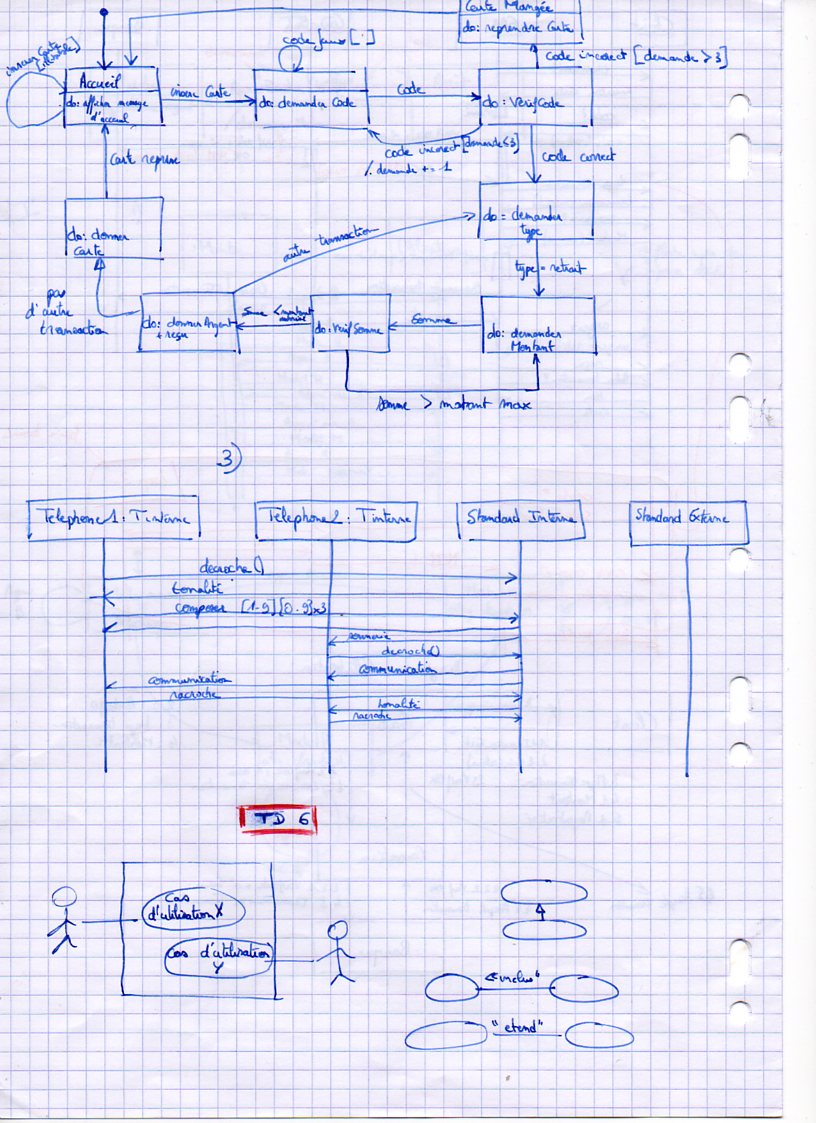 Carte Mangée
do: reprendre Carte
code faux [ ]
insere Carte
[illisible]
code incorect [demande > 3]
Accueil
do: afficher message
d'acceuil
insere Carte
do: demander Code
Code
do: VerifCode
code incorect [demande≤3]
/. demande += -1
code correct
Carte reprise
do: donner
carte
autre transaction
do = demander
type
type = retrait
pas
d'autre
transaction
do: donner Argent
+ reçu
Somme < montant
do: Verif Somme
Somme
do: demander
Montant
somme > motant max
3)
Telephone1: Tinterne
Telephone2: Tinterne
Standard Interne
Standard Externe
decroche()
tonalité
composer [1-9][0-9]x3
sonnerie
decroche()
communication
communication
racroche
tonalité
racroche
TD 6
cas
d'utilisation X
cas d'utilisation
Y
"inclus"
"etend"